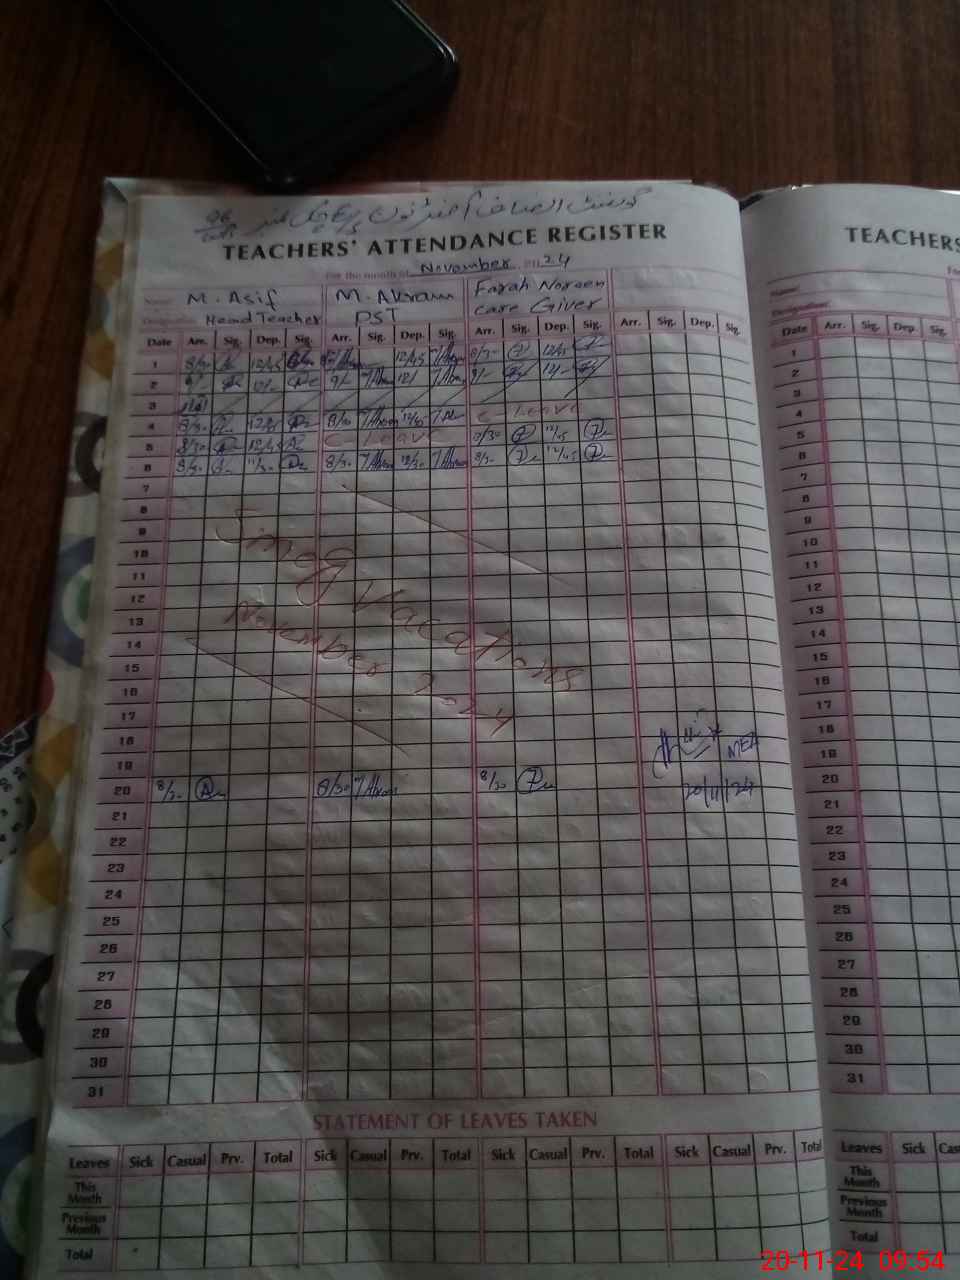 گورنمنٹ انصاف آفٹرنون
TEACHERS' ATTENDANCE REGISTER
TEACHERS'
For the month of November 2024
Name: M. Asif M. Akram Farah Noreen
Designation: Head Teacher PST Care Giver
Name:
Designation:
Date Arr. Sig. Dep. Sig. Arr. Sig. Dep. Sig. Arr. Sig. Dep. Sig. Arr. Sig. Dep. Sig.
Date Arr. Sig. Dep. Sig.
1 8/30 12/45 12/45 8/30 12/45
2 9/- 12/- 9/- 12/ 9/- 12/-
3
4 8/30 12/45 8/30 12/30 C-Leave
5 8/30 12/45 C-Leave 8/30 12/45
6 8/30 11/30 8/30 12/30 8/30 12/45
7
8
9
10
11
12
13
14
15
16
17
18
19
Smog Vacations
November 2024
20 8/30 8/30 Akram 8/30
MEA
20/11/24
21
22
23
24
25
26
27
28
29
30
31
1
2
3
4
5
6
7
8
9
10
11
12
13
14
15
16
17
18
19
20
21
22
23
24
25
26
27
28
29
30
31
STATEMENT OF LEAVES TAKEN
Leaves Sick Casual Prv. Total Sick Casual Prv. Total Sick Casual Prv. Total Sick Casual Prv. Total
This Month
Previous Month
Total
Leaves Sick Cas
This Month
Previous Month
Total
20-11-24 09:54